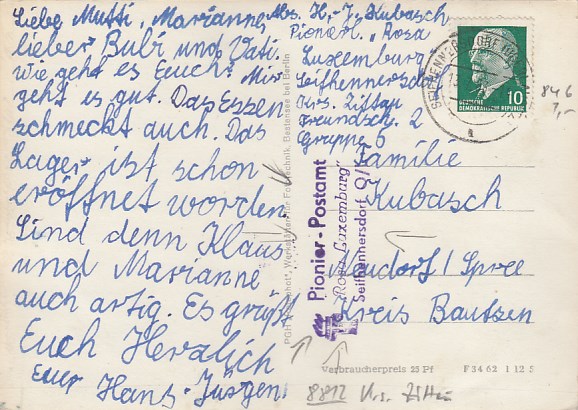 Liebe Mutti, Marianne,
lieber Bubi und Vati.
wie geht es Euch? Mir
geht es gut. Das Essen
schmeckt auch. Das
Lager ist schon
eröffnet worden.
Sind denn Klaus
und Marianne
auch artig. Es grüßt
Euch Herzlich
Euer Hans-Jürgen
Abs. H.-J. Kubasch
Pionierl. "Rosa
Luxemburg"
Seifhennersdorf
Krs. Zittau
Freundsch. 2
Gruppe 6
SEIFHENNERSDORF
10
DEUTSCHE
DEMOKRATISCHE REPUBLIK
846
1,-
Familie
Kubasch
Neudorf / Spree
Kreis Bautzen
Pionier-Postamt
"Rosa Luxemburg"
Seifhennersdorf O/L
Werkstätten für Fototechnik, Bestensee bei Berlin
Verbraucherpreis 25 Pf F 34 62 1 12 5
8812 Krs. Zittau